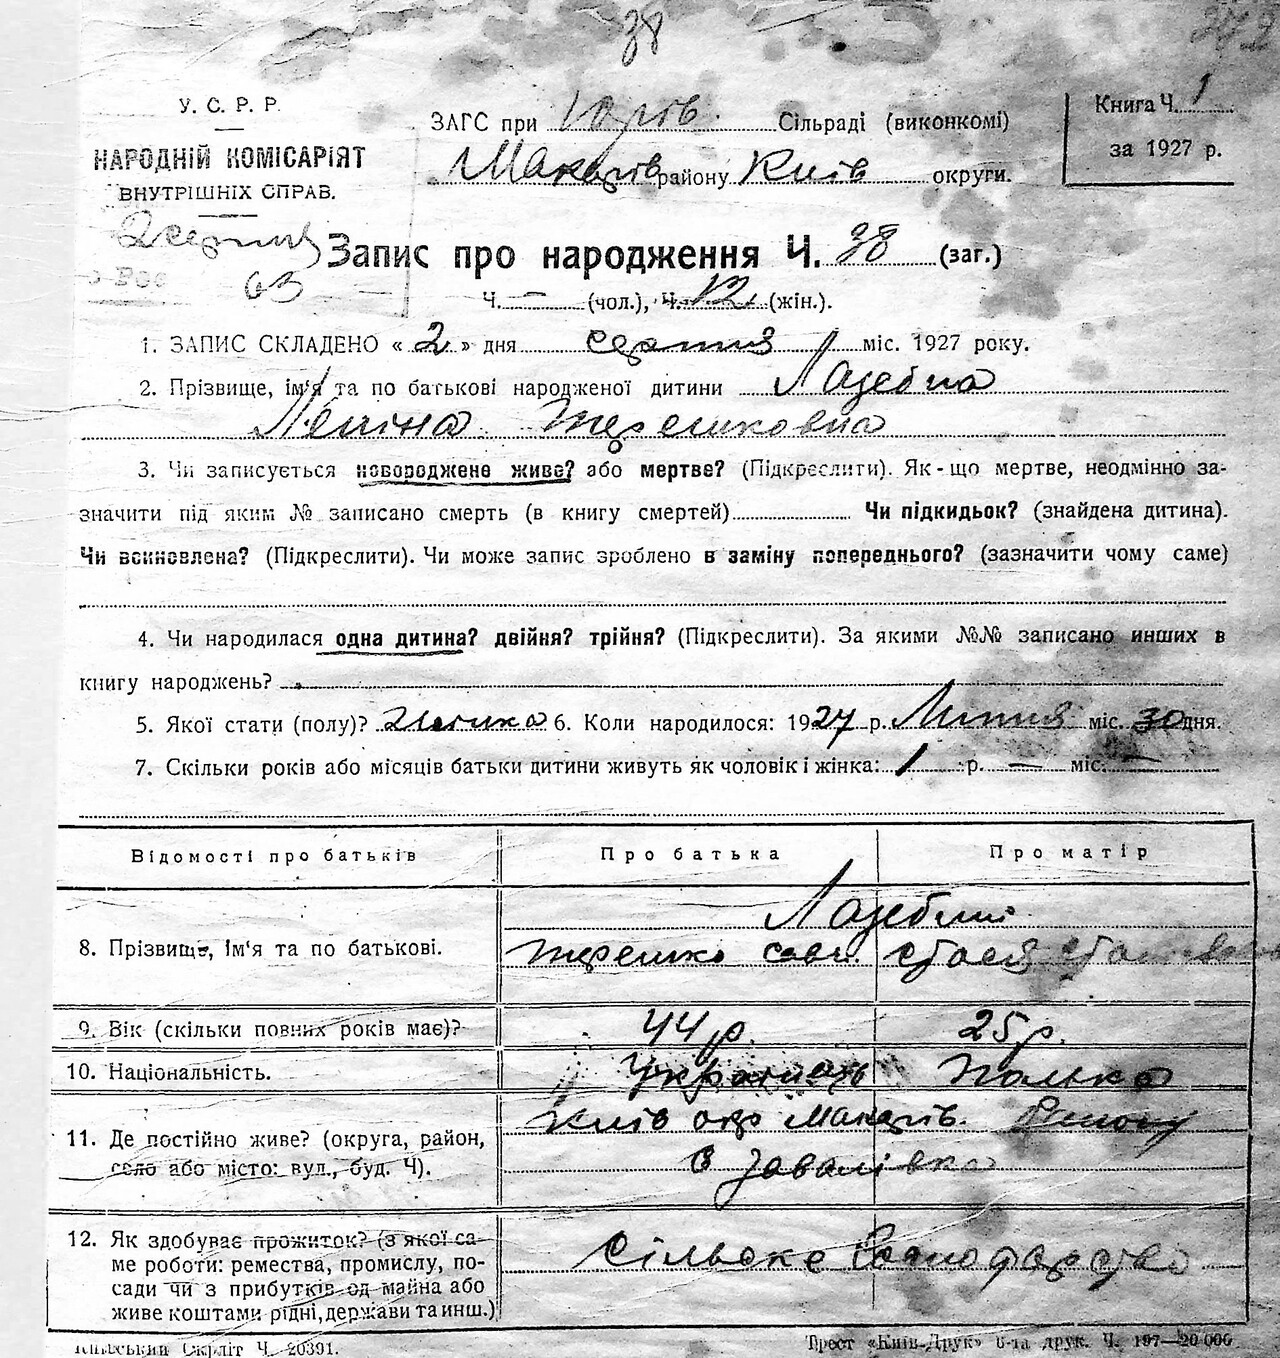 38
У. С. Р. Р.
НАРОДНІЙ КОМІСАРІЯТ
ВНУТРІШНІХ СПРАВ.
ЗАГС при Юрів. Сільраді (виконкомі)
Макарів району Київ округи.
Книга Ч. 1
за 1927 р.
2 серпня
63
Запис про народження Ч. 38 (заг.)
Ч. — (чол.), Ч. 12 (жін.).
1. ЗАПИС СКЛАДЕНО « 2 » дня серпня міс. 1927 року.
2. Прізвище, ім'я та по батькові народженої дитини Лазебна
Леніна Терешковна
3. Чи записується новороджене живе? або мертве? (Підкреслити). Як-що мертве, неодмінно за-
значити під яким № записано смерть (в книгу смертей) Чи підкидьок? (знайдена дитина).
Чи всиновлена? (Підкреслити). Чи може запис зроблено в заміну попереднього? (зазначити чому саме)
4. Чи народилася одна дитина? двійня? трійня? (Підкреслити). За якими №№ записано инших в
книгу народжень?
5. Якої стати (полу)? 6. Коли народилося: 1927 р. Липня міс. 30 дня.
7. Скільки років або місяців батьки дитини живуть як чоловік і жінка: 1 р. — міс. —
Відомості про батьків Про батька Про матір
Лазебні
8. Прізвище, ім'я та по батькові. Терешко Сав. Стася
9. Вік (скільки повних років має)? 44 р. 25 р.
10. Національність. Українець Полька
11. Де постійно живе? (округа, район, Київ окр Макарів. Району
село або місто: вул., буд. Ч). С Завалівка
12. Як здобуває прожиток? (з якої са-
ме роботи: ремества, промислу, по- Сільске Господарство
сади чи з прибутків од майна або
живе коштами рідні, держави та инш.)
Київський Окрліт Ч. 20391. Трест «Київ-Друк» 6-та друк. Ч. 197—20 000